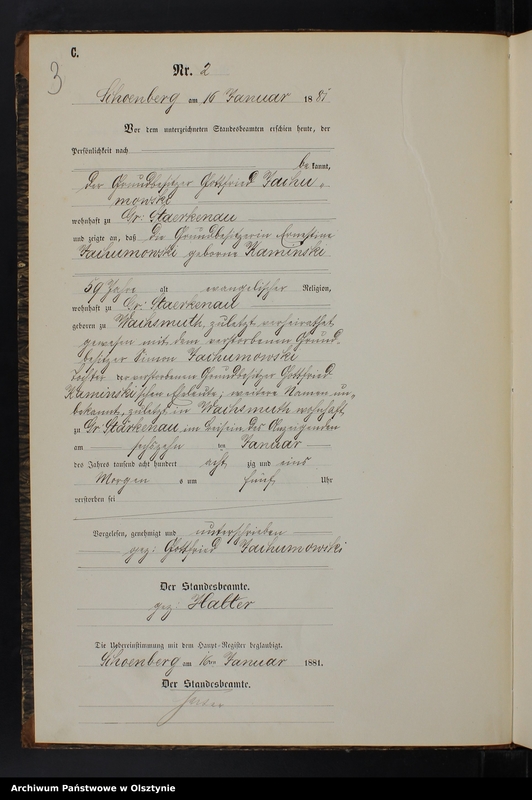 C.
3
Nr. 2
Schoenberg am 16 Januar 1881
Vor dem unterzeichneten Standesbeamten erschien heute, der
Persönlichkeit nach
be kannt,
der Grundbesitzer Gottfried Jaihu-
mowski
wohnhaft zu Gr: Staerkenau
und zeigte an, daß die Grundbesitzerin Ernestine
Jaihumowski geborene Kaminski
59 Jahre alt evangelischer Religion,
wohnhaft zu Gr: Staerkenau
geboren zu Wachsmuth, zuletzt verheirathet
gewesen mit dem verstorbenen Grund-
besitzer Simon Jaihumowski
Tochter der verstorbenen Grundbesitzer Gottfried
Kaminski'schen Eheleute; weitere Namen un-
bekannt, zuletzt in Wachsmuth wohnhaft
zu Gr Stärkenau im Beisein des Anzeigenden
am sechszehn ten Januar
des Jahres tausend acht hundert acht zig und eins
Morgens um fünf Uhr
verstorben sei
Vorgelesen, genehmigt und unterschrieben
gez: Gottfried Jaihumowski
Der Standesbeamte.
gez: Halter
Die Uebereinstimmung mit dem Haupt-Register beglaubigt.
Schoenberg am 16ten Januar 1881.
Der Standesbeamte.
Archiwum Państwowe w Olsztynie